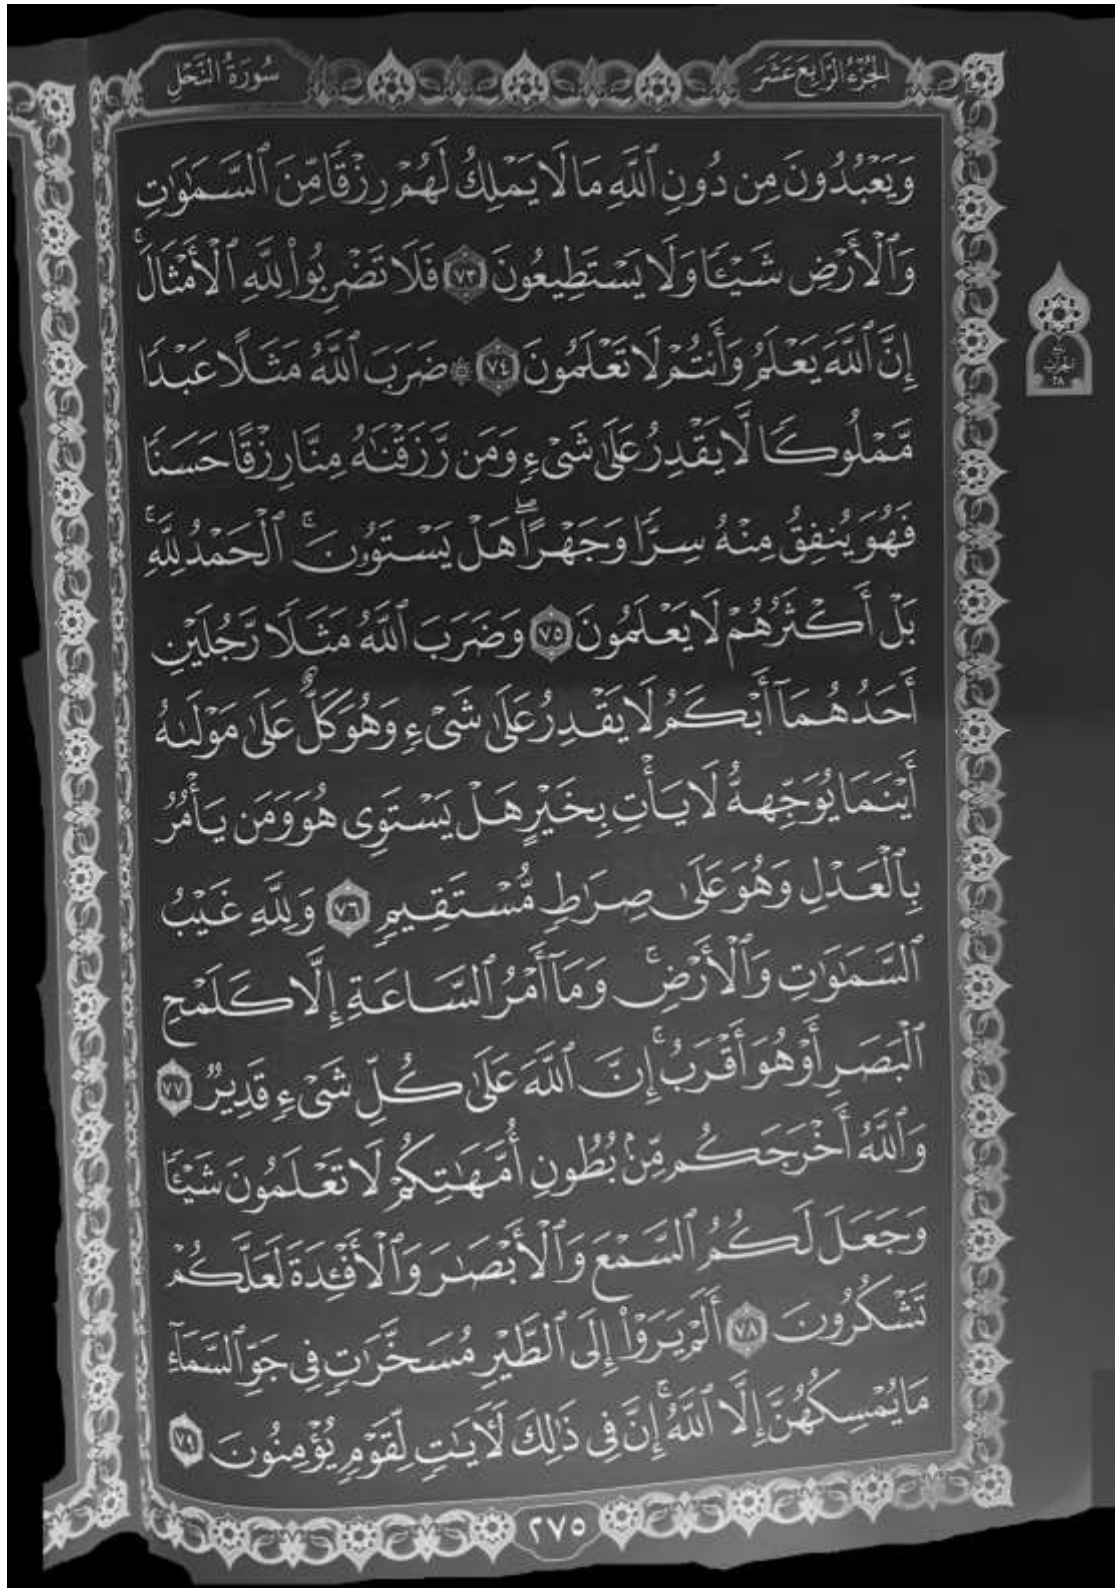 الجُزْءُ الرَّابِعَ عَشَرَ
سُورَةُ النَّحْلِ
وَيَعْبُدُونَ مِن دُونِ ٱللَّهِ مَا لَا يَمْلِكُ لَهُمْ رِزْقًا مِّنَ ٱلسَّمَٰوَٰتِ
وَٱلْأَرْضِ شَيْـًٔا وَلَا يَسْتَطِيعُونَ ٧٣ فَلَا تَضْرِبُوا۟ لِلَّهِ ٱلْأَمْثَالَ ۚ
إِنَّ ٱللَّهَ يَعْلَمُ وَأَنتُمْ لَا تَعْلَمُونَ ٧٤ ۞ ضَرَبَ ٱللَّهُ مَثَلًا عَبْدًا
مَّمْلُوكًا لَّا يَقْدِرُ عَلَىٰ شَىْءٍ وَمَن رَّزَقْنَٰهُ مِنَّا رِزْقًا حَسَنًا
فَهُوَ يُنفِقُ مِنْهُ سِرًّا وَجَهْرًا ۖ هَلْ يَسْتَوُۥنَ ۚ ٱلْحَمْدُ لِلَّهِ ۚ
بَلْ أَكْثَرُهُمْ لَا يَعْلَمُونَ ٧٥ وَضَرَبَ ٱللَّهُ مَثَلًا رَّجُلَيْنِ
أَحَدُهُمَآ أَبْكَمُ لَا يَقْدِرُ عَلَىٰ شَىْءٍ وَهُوَ كَلٌّ عَلَىٰ مَوْلَىٰهُ
أَيْنَمَا يُوَجِّههُّ لَا يَأْتِ بِخَيْرٍ هَلْ يَسْتَوِى هُوَ وَمَن يَأْمُرُ
بِٱلْعَدْلِ وَهُوَ عَلَىٰ صِرَٰطٍ مُّسْتَقِيمٍ ٧٦ وَلِلَّهِ غَيْبُ
ٱلسَّمَٰوَٰتِ وَٱلْأَرْضِ ۚ وَمَآ أَمْرُ ٱلسَّاعَةِ إِلَّا كَلَمْحِ
ٱلْبَصَرِ أَوْ هُوَ أَقْرَبُ ۚ إِنَّ ٱللَّهَ عَلَىٰ كُلِّ شَىْءٍ قَدِيرٌ ٧٧
وَٱللَّهُ أَخْرَجَكُم مِّنۢ بُطُونِ أُمَّهَٰتِكُمْ لَا تَعْلَمُونَ شَيْـًٔا
وَجَعَلَ لَكُمُ ٱلسَّمْعَ وَٱلْأَبْصَٰرَ وَٱلْأَفْـِٔدَةَ لَعَلَّكُمْ
تَشْكُرُونَ ٧٨ أَلَمْ يَرَوْا۟ إِلَى ٱلطَّيْرِ مُسَخَّرَٰتٍ فِى جَوِّ ٱلسَّمَآءِ
مَا يُمْسِكُهُنَّ إِلَّا ٱللَّهُ ۚ إِنَّ فِى ذَٰلِكَ لَـَٔايَٰتٍ لِّقَوْمٍ يُؤْمِنُونَ ٧٩
٢٧٥